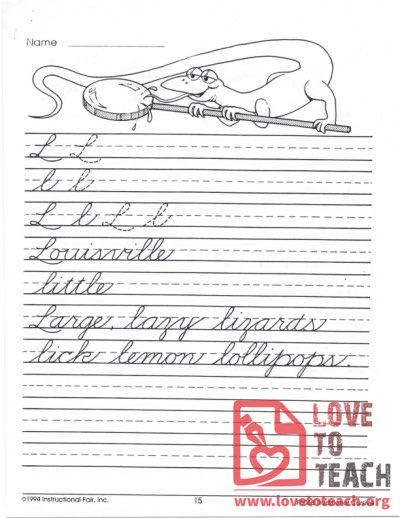 Name
L L
l l
L l L l
Louisville
little
Large, lazy lizards
lick lemon lollipops.
LOVE
TO
TEACH
www.lovetoteach.org
©1994 Instructional Fair, Inc.
15